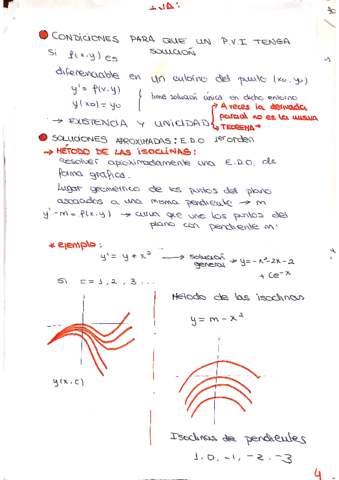 ● CONDICIONES PARA QUE UN P.V.I TENGA
SOLUCIÓN
Si f(x,y) es
diferenciable en un entorno del punto (x₀, y₀)
y' = f(x,y)
y(x₀) = y₀
tiene solución única en dicho entorno
→ EXISTENCIA Y UNICIDAD
→ A veces la derivada
parcial no es la misma
→ TEOREMA
● SOLUCIONES APROXIMADAS: E.D.O 1er orden
→ MÉTODO DE LAS ISOCLINAS:
Resolver aproximadamente una E.D.O. de
forma gráfica.
Lugar geométrico de los puntos del plano
asociados a una misma pendiente → m
y' = m = f(x,y) → curva que une los puntos del
plano con pendiente m.
* ejemplo:
y' = y + x² → solución general → y = -x²-2x-2
+ Ce^x
Si c = 1, 2, 3 ...
Método de las isoclinas
y = m - x²
y(x,c)
Isoclinas de pendientes
1, 0, -1, -2, -3
4